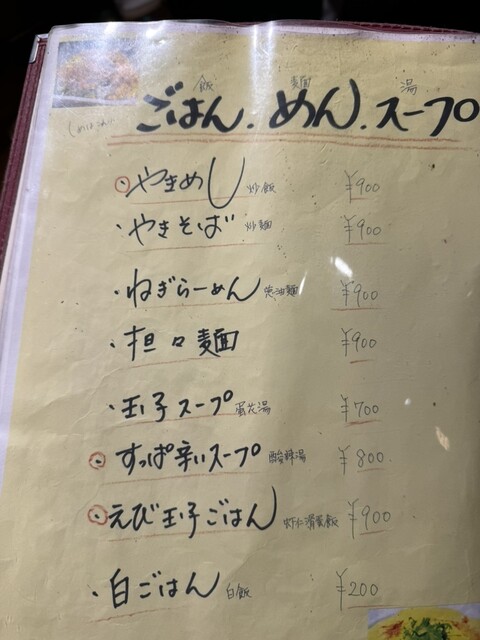 飯 麺 湯
ごはん.めん.スープ
・やきめし 炒飯 ¥900
・やきそば 炒麺 ¥900
・ねぎらーめん 葱油麺 ¥900
・担々麺 ¥900
・玉子スープ 蛋花湯 ¥700
・すっぱ辛いスープ 酸辣湯 ¥800
・えび玉子ごはん ¥900
・白ごはん 白飯 ¥200